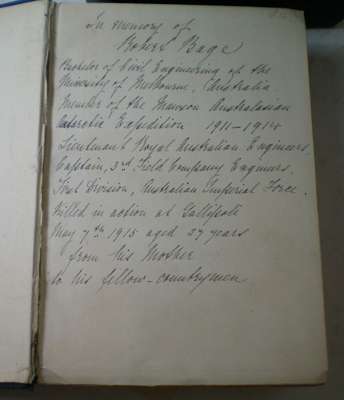 In memory of
Robert Bage
Bachelor of Civil Engineering of the
University of Melbourne, Australia
Member of the Mawson Australasian
Antarctic Expedition 1911-1914
Lieutenant Royal Australian Engineers
Captain, 3rd Field Company Engineers,
First Division, Australian Imperial Force.
Killed in action at Gallipoli
May 7th 1915 aged 27 years
from his Mother
to his fellow-countrymen